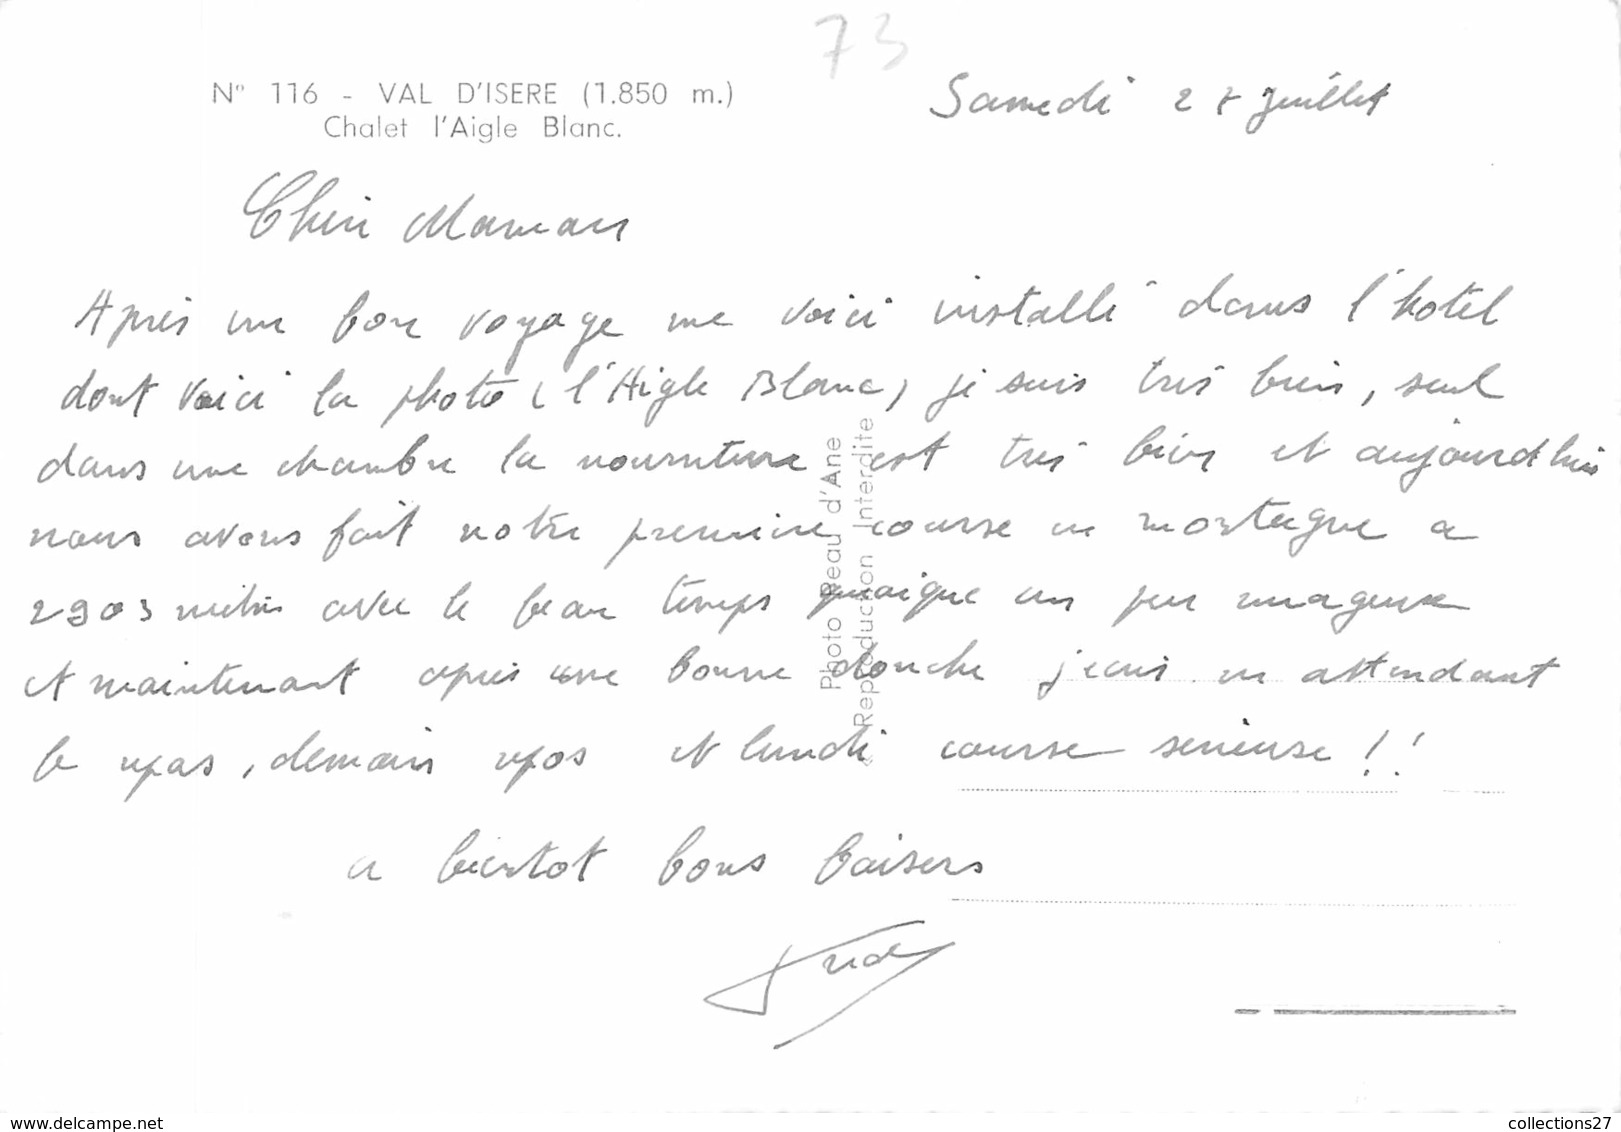 73
N° 116 - VAL D'ISERE (1.850 m.)
Chalet l'Aigle Blanc.
Samedi 27 juillet
Chère Maman
Après un bon voyage me voici installé dans l'hotel
dont voici la photo (l'Aigle Blanc) je suis très bien, seul
dans une chambre la nourriture est très bien et aujourd'hui
nous avons fait notre première course en montagne a
2903 mètres avec le beau temps quoique un peu nuageux
et maintenant après une bonne douche j'écris en attendant
le repas, demain repos et lundi course sérieuse !!
a bientot bons baisers
Photo Reau d'Ane
Reproduction Interdite
collections27